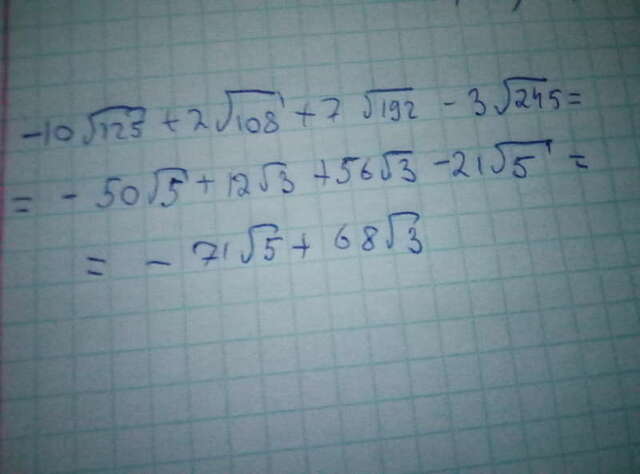 -10√125 + 2√108 + 7√192 - 3√245 =
= - 50√5 + 12√3 + 56√3 - 21√5 =
= - 71√5 + 68√3